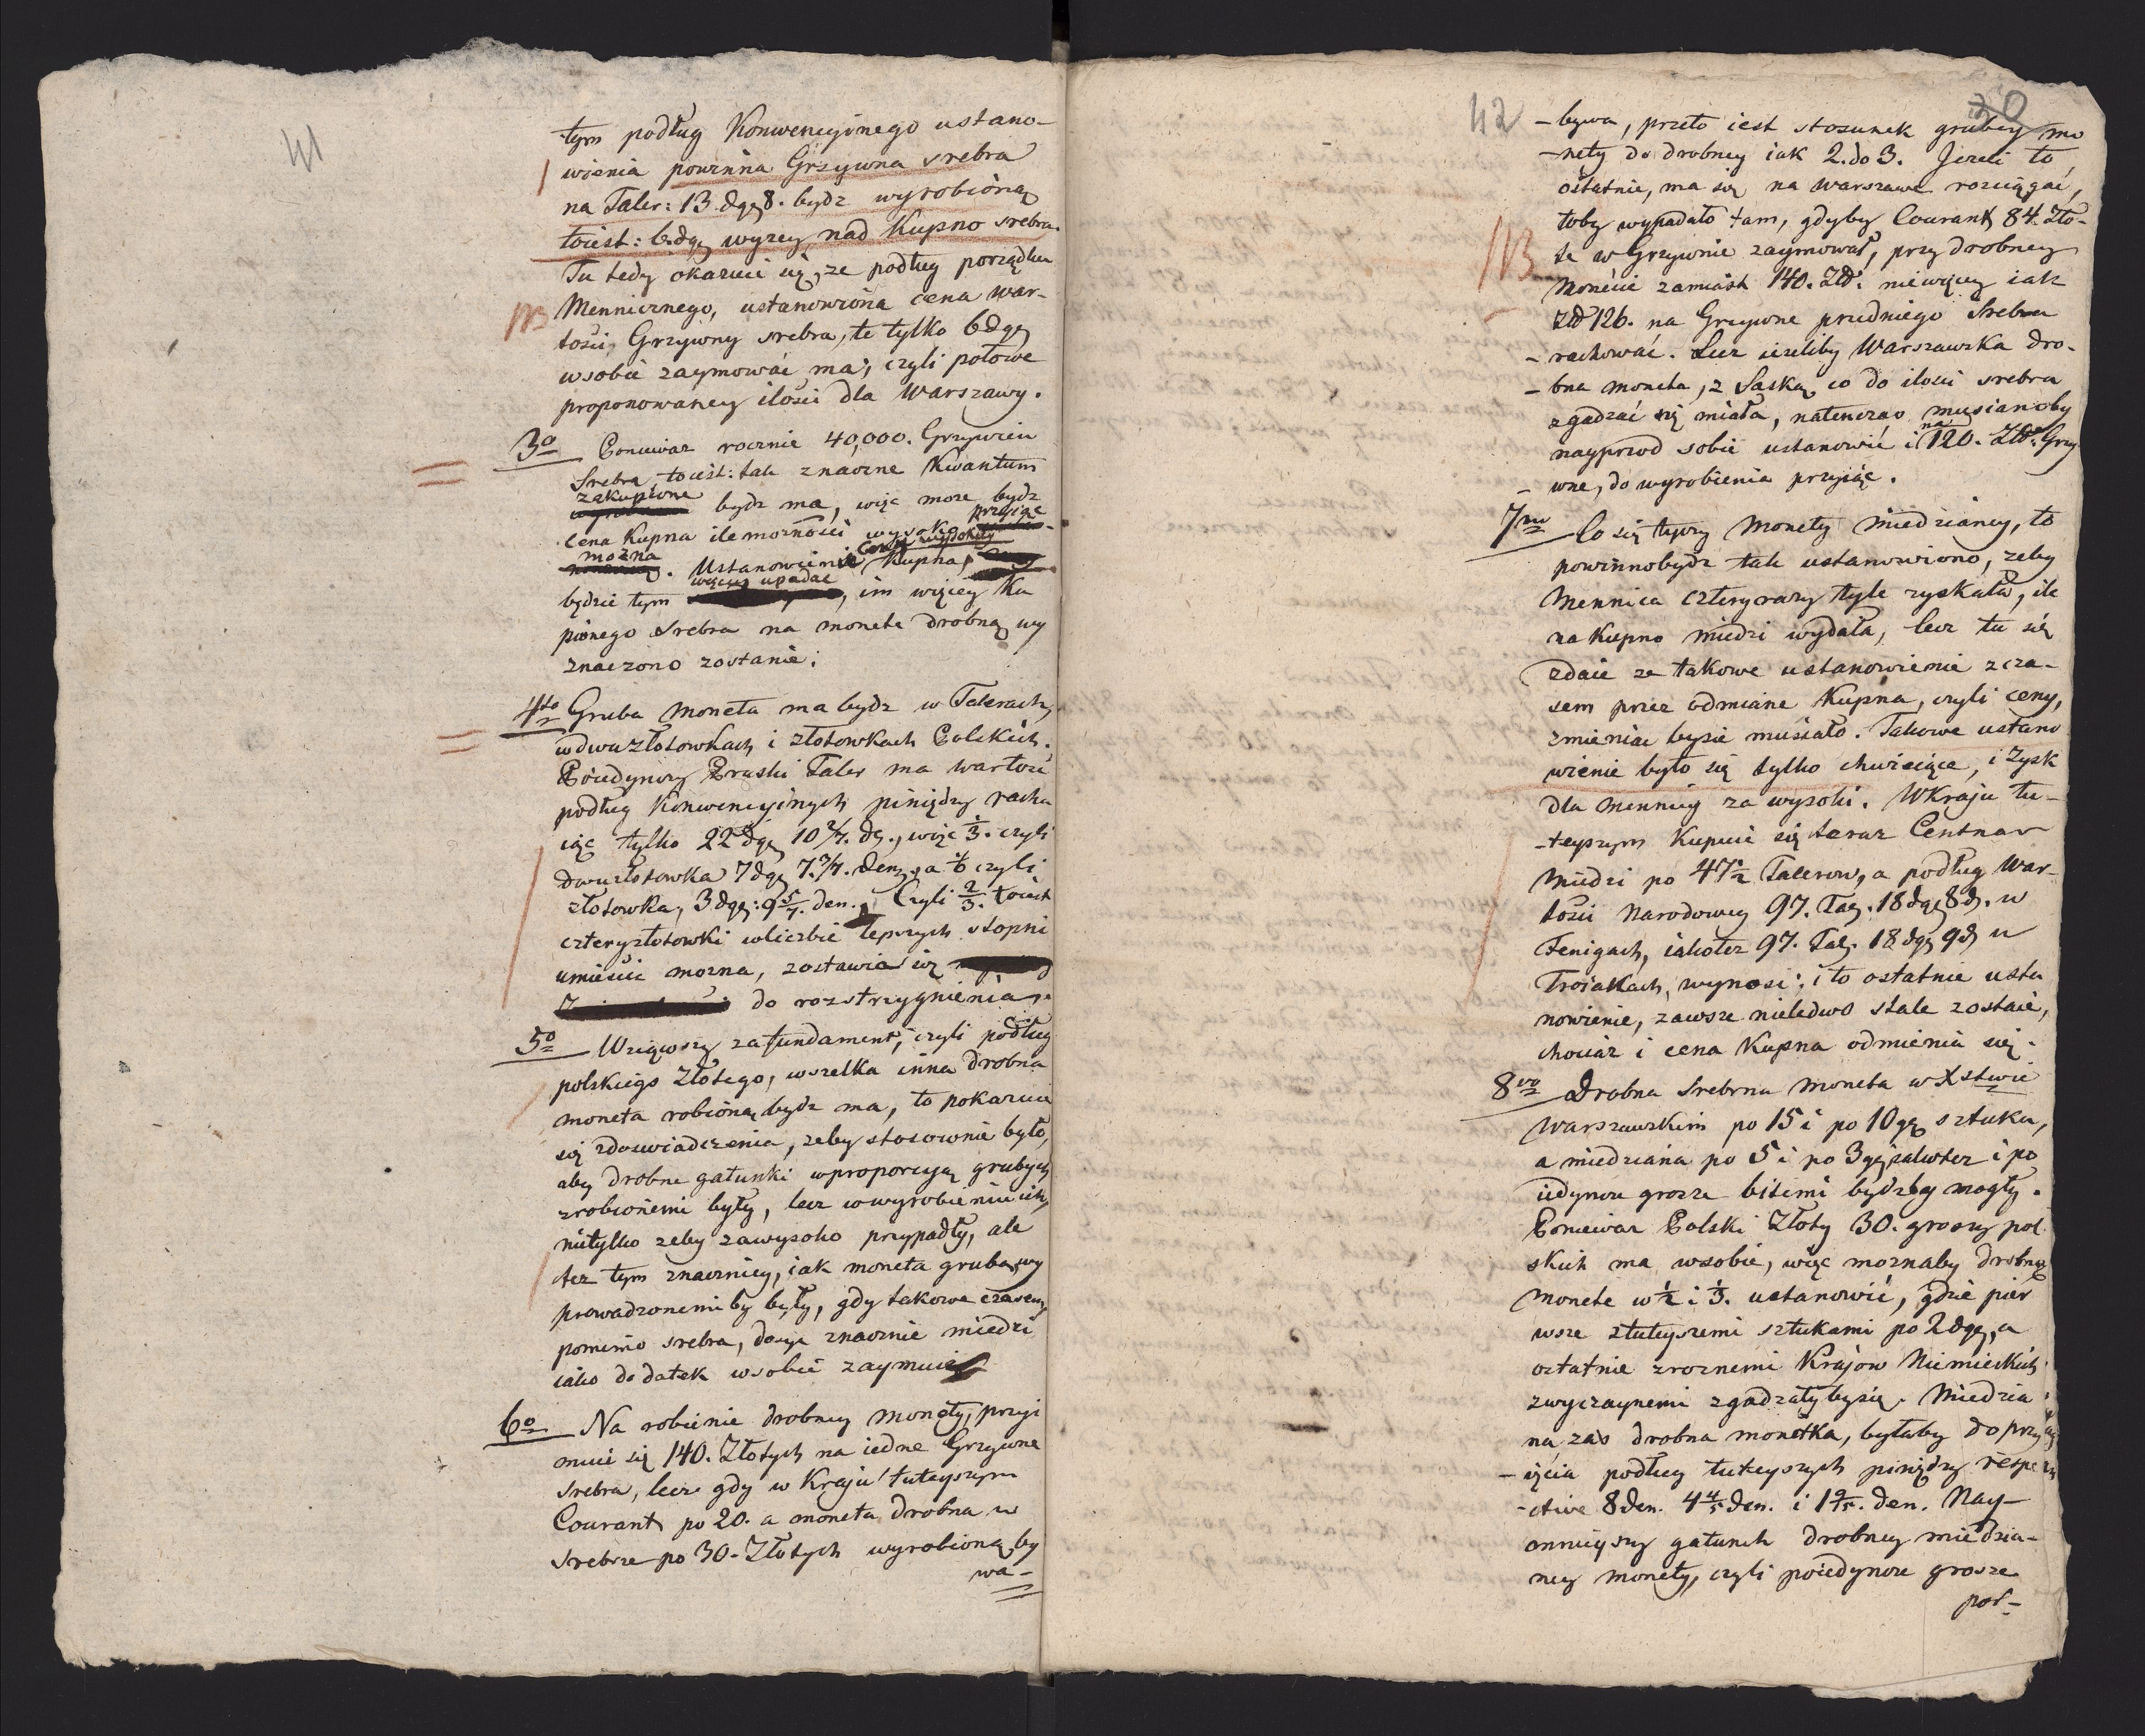 41
tym podług Konwencyinego ustano-
wienia powinna Grzywna srebra
na Taler: 13. dgę 8. bydz wyrobioną
toiest: 6. dgę wyzey nad Kupno srebra.
Tu tedy okazuie się, ze podług porządku
NB Mennicznego, ustanowiona cena war-
tosci Grzywny srebra, te tylko 6 dgę
wsobie zaymować ma, czyli połowe
proponowaney ilosci dla Warszawy.
3o Poniewaz rocznie 40,000. Grzywien
Srebra, toiest: tak znaczne Kwantum
zakupione bydz ma, więc moze bydz
cena Kupna ile mozności wysoko przyięc
można. Ustanowienie Ceny wysokiey Kupna,
będzie tym więcey upadac, im więcey Ku
pionego srebra na monete drobną wy
znaczono zostanie;
4to Gruba moneta ma bydz w Talerach,
wdwuzłotowkach i złotowkach Polskich.
Poiedynczy Pruski Taler ma wartosc
podług Konwencyinych piniędzy rachu
iąc tylko 22 dgę 10 2/7. dę., więc 1/3. czyli
dwuzłotowka 7 dgę 7. 3/7. den., a 1/6 czyli
złotowka, 3 dgę: 9 5/7. den., Czyli 2/3. toiest
czteryzłotowki wliczbie lepszych stopni
umieścic mozna, zostawia się
do rozstrzygnienia.
5o Wziąwszy zafundament, czyli podług
polskiego złotego, wszelka inna drobna
moneta robioną bydz ma, to pokazuie
się zdoswiadczenia, zeby stosownie było,
aby drobne gatunki wproporcyą grubych
zrobionemi były, lecz wwyrobieniu ich,
nietylko zeby zawysoko przypadły, ale
tez tym znaczniey, iak moneta gruba, wy
prowadzonemiby były, gdy takowe czasem,
pomimo srebra, dosyc znacznie miedzi
iako dodatek wsobie zaymuie
6o Na robienie drobney monety, przyi
muie się 140. Złotych na iedne Grzywne
srebra, lecz gdy w Kraju tuteyszym
Courant po 20. a moneta drobna w
srebrze po 30. Złotych wyrobioną by
wa-
42 20
-bywa, przeto iest stosunek grubey mo
-nety do drobney iak 2. do 3. Jezeli to
ostatnie, ma się na Warszawe rozciągać,
toby wypadało tam, gdyby Courant 84. Zło-
NB te w Grzywnie zaymował, przy drobney
Monecie zamiast 140. Złł. niewięcey iak
Złł 126. na Grzywne przedniego Srebra
-rachować. Lecz iezeliby Warszawska dro-
-bna moneta, z Saską co do ilosci srebra
zgadzać się miała, natenczas musianoby
nayprzod sobie ustanowić i na 120. Złł: Grzy
-wne, do wyrobienia przyiąc.
7mo Co się tyczy Monety miedzianey, to
powinnobydz tak ustanowiono, zeby
Mennica cztery razy tyle zyskała, ile
na Kupno miedzi wydała, lecz tu się
zdaie ze takowe ustanowienie z cza-
sem przez odmiane Kupna, czyli ceny,
zmieniac bysie musiało. Takowe ustano
wienie było się tylko chwieiące, i Zysk
dla mennicy za wysoki. WKraju tu-
-teyszym Kupuie się teraz Centnar
Miedzi po 47 1/2 Talerow, a podług War-
tosci Narodowey 97. Tal. 18 dgę 8 d. w
Fenigach, iakotez 97. Tal. 18 dgę 9 d w
Troiakach, wynosi; i to ostatnie usta
nowienie, zawsze nieledwo stale zostaie,
chociaz i cena Kupna odmienia się.
8vo Drobna Srebrna Moneta w Xstwie
Warszawskim po 15 i po 10 gę sztuka,
a miedziana po 5 i po 3 gę iakotez i po
iedyncze grosze bitemi bydzby mogły.
Poniewaz Polski Złoty 30. groszy pol
skich ma wsobie, więc moznaby drobną
Monete w 1/2 i 1/3. ustanowić, gdzie pier
wsze ztuteyszemi sztukami po 2 dgę, a
ostatnie zroznemi Krajow Niemieckich
zwyczaynemi zgadzałybysię. Miedzia
na zas drobna monetka, byłaby do przy
-ięcia podług tuteyszych piniędzy respe
-ctive 8 den. 4 4/5 den. i 1 3/5. den. Nay-
mnieyszy gatunek drobney miedzia-
ney monety, czyli poiedyncze grosze
pol-